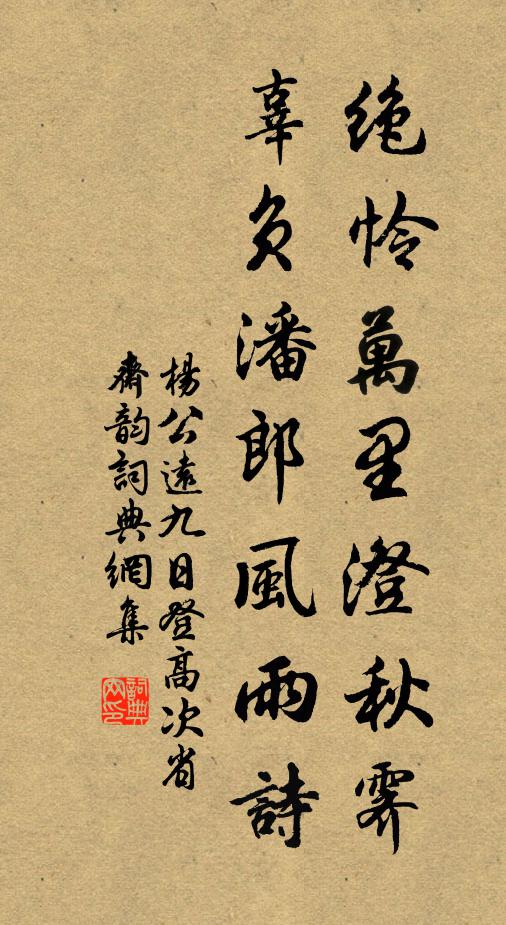 絶怜萬里澄秋霽
辜負潘郎風雨詩
楊公遠九日登高次省
齋韵詞典網集
詞典
网印